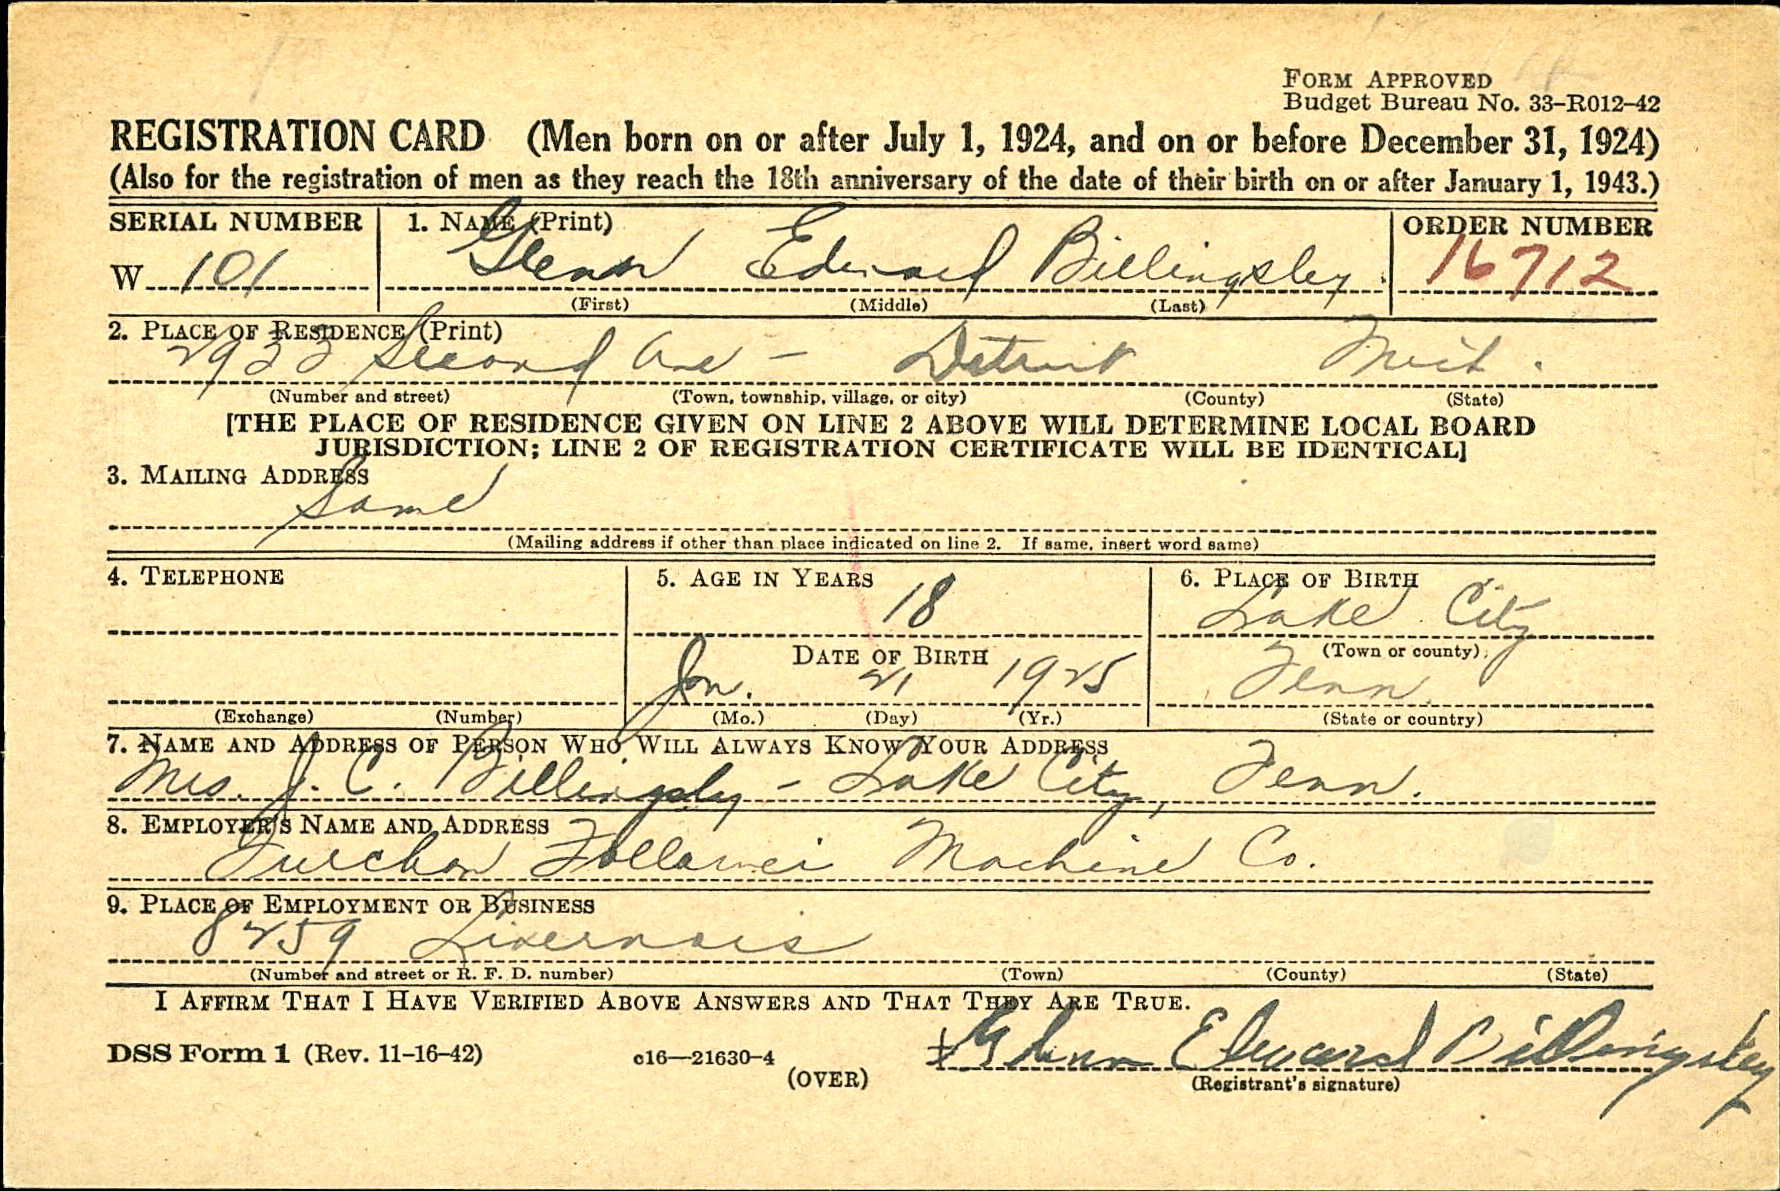 FORM APPROVED
Budget Bureau No. 33-R012-42
REGISTRATION CARD (Men born on or after July 1, 1924, and on or before December 31, 1924)
(Also for the registration of men as they reach the 18th anniversary of the date of their birth on or after January 1, 1943.)
SERIAL NUMBER 1. NAME (Print) ORDER NUMBER
W 101 Glenn Edward Billingsley 16712
(First) (Middle) (Last)
2. PLACE OF RESIDENCE (Print)
2933 Second Ave - Detroit Mich.
(Number and street) (Town, township, village, or city) (County) (State)
[THE PLACE OF RESIDENCE GIVEN ON LINE 2 ABOVE WILL DETERMINE LOCAL BOARD
JURISDICTION; LINE 2 OF REGISTRATION CERTIFICATE WILL BE IDENTICAL]
3. MAILING ADDRESS
Same
(Mailing address if other than place indicated on line 2. If same, insert word same)
4. TELEPHONE 5. AGE IN YEARS 6. PLACE OF BIRTH
18 Lake City
DATE OF BIRTH (Town or county)
Jan. 21 1925 Tenn
(Exchange) (Number) (Mo.) (Day) (Yr.) (State or country)
7. NAME AND ADDRESS OF PERSON WHO WILL ALWAYS KNOW YOUR ADDRESS
Mrs. J. C. Billingsly - Lake City, Tenn.
8. EMPLOYER'S NAME AND ADDRESS
Machine Co.
9. PLACE OF EMPLOYMENT OR BUSINESS
8259 Livernois
(Number and street or R. F. D. number) (Town) (County) (State)
I AFFIRM THAT I HAVE VERIFIED ABOVE ANSWERS AND THAT THEY ARE TRUE.
DSS Form 1 (Rev. 11-16-42) c16—21630-4 Glenn Edward Billingsley
(OVER) (Registrant's signature)